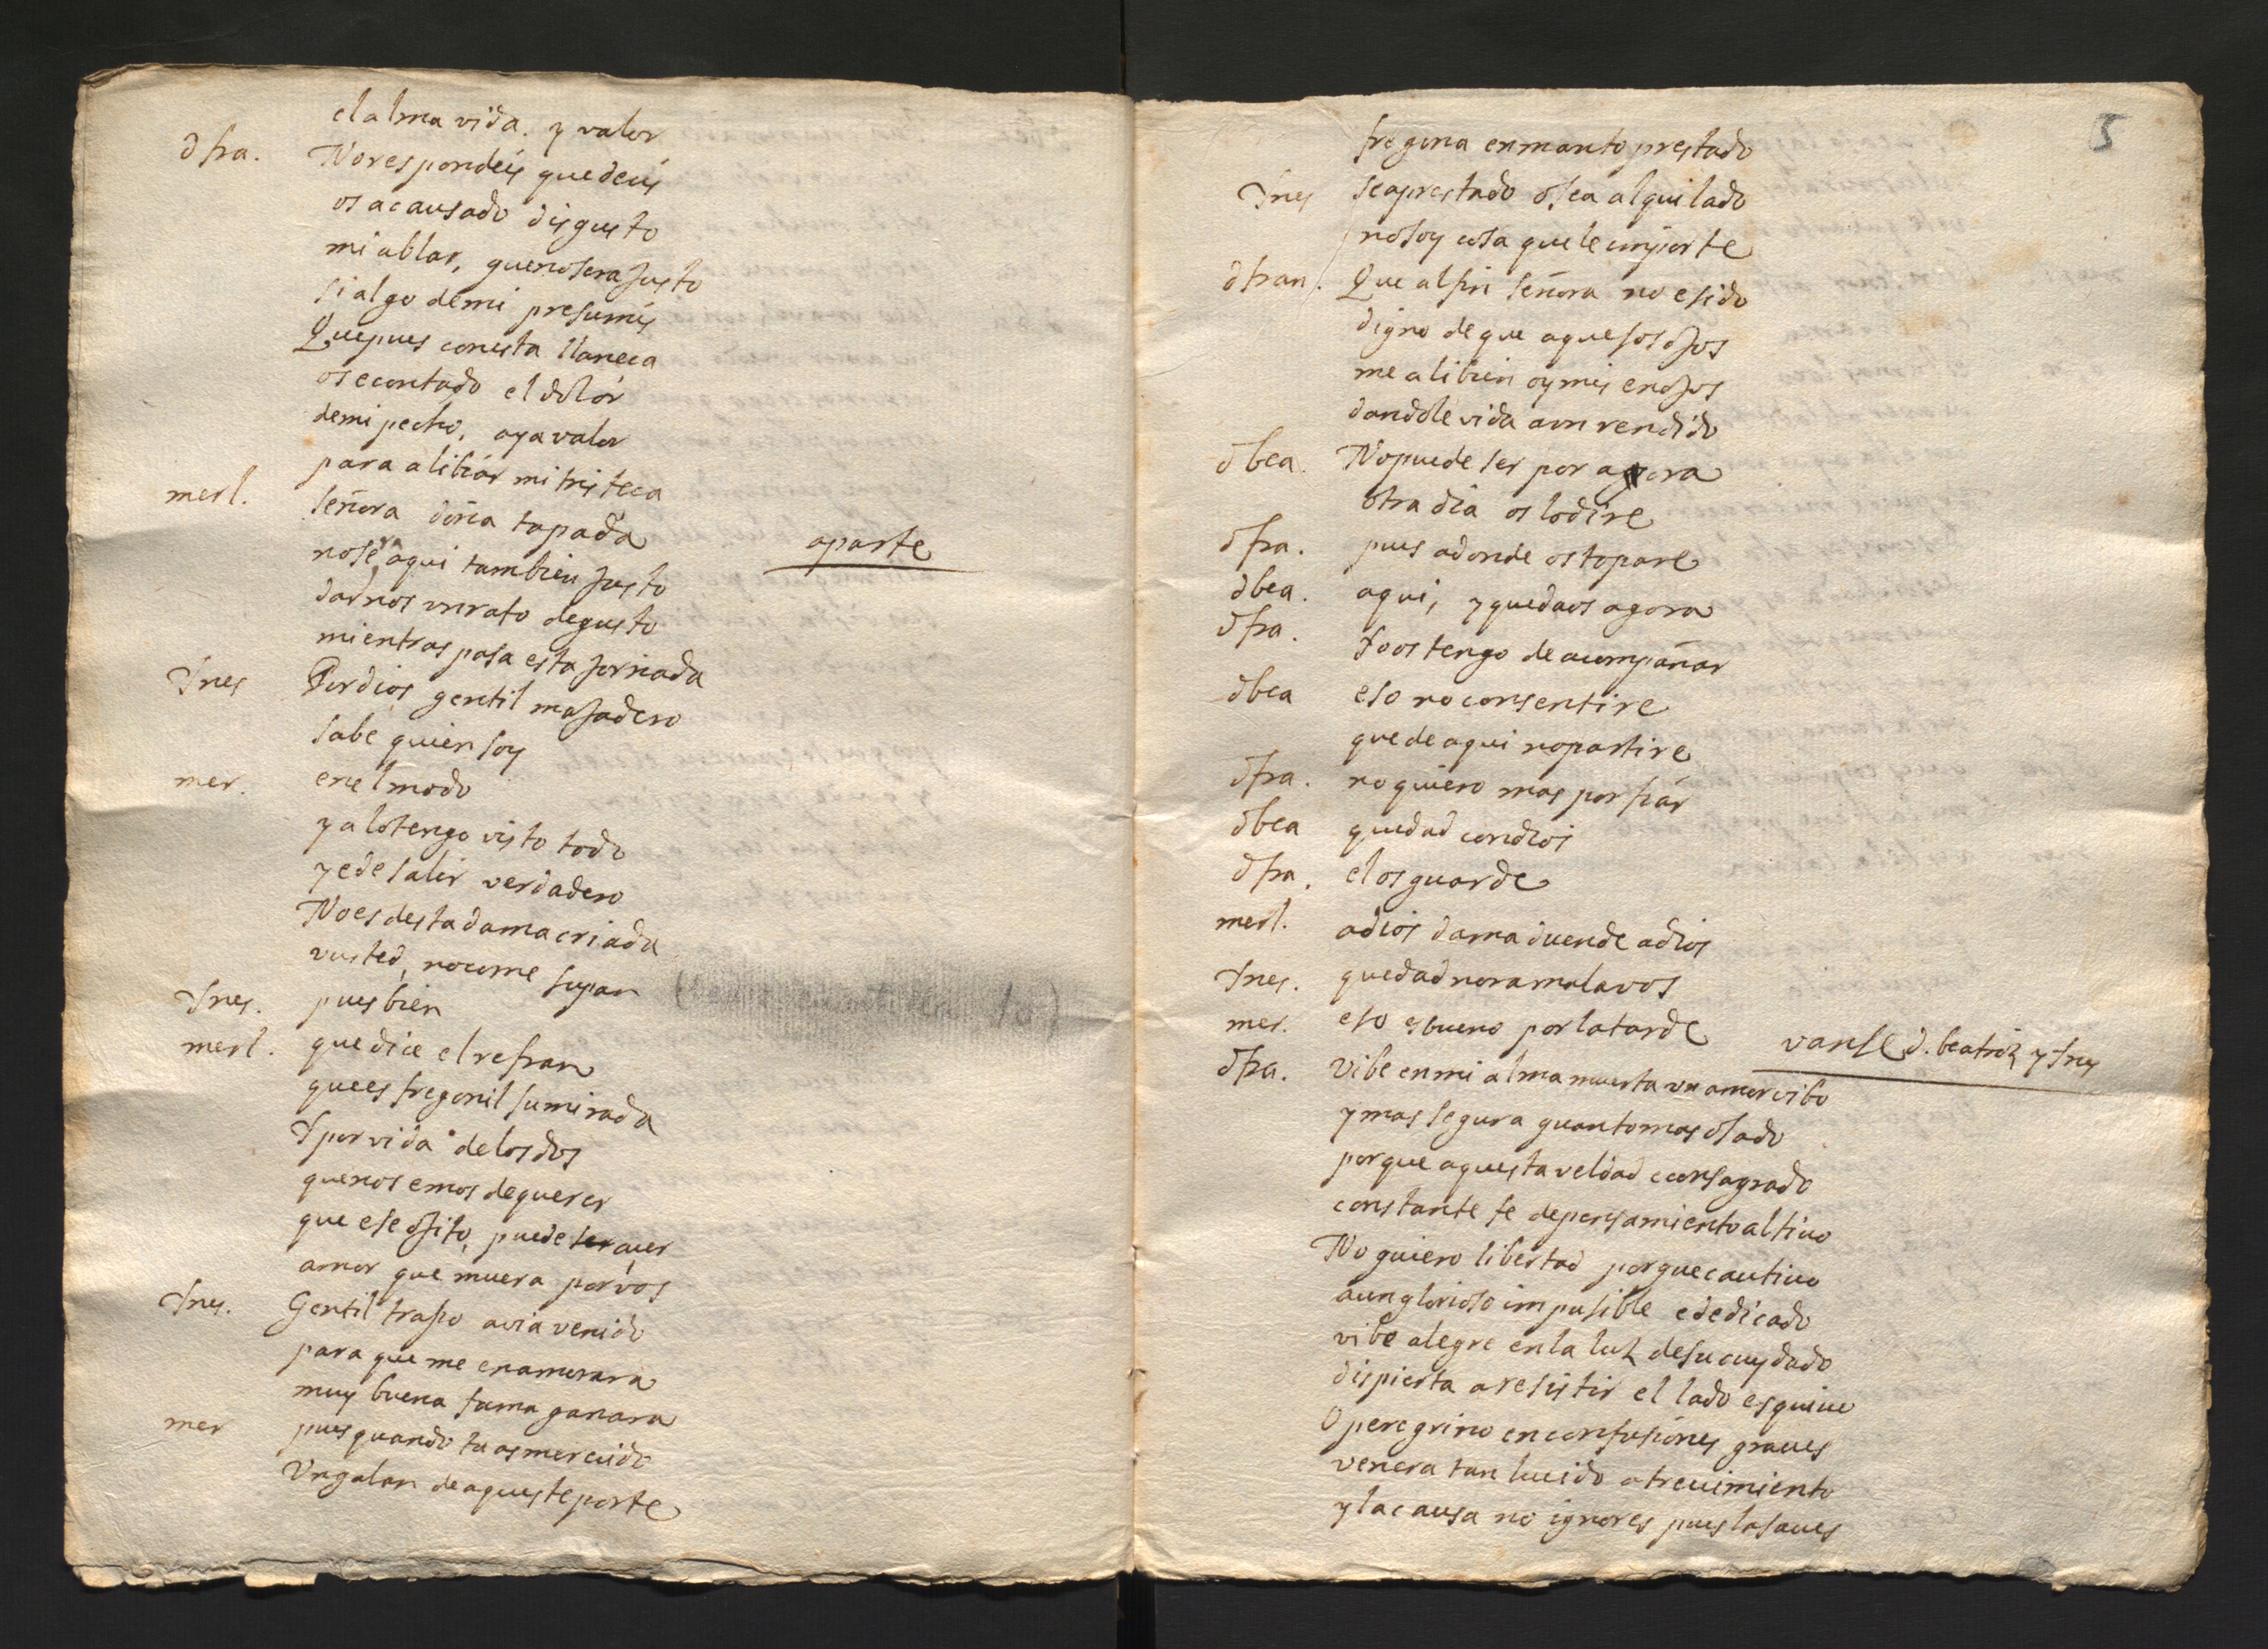 el alma vida. y valor
d fra. No respondeis que deçis
os a causado disgusto
mi ablar, que no sera justo
si algo de mi presumis
Que pues con esta llaneça
os e contado el dolor
de mi pecho, aya valor
para alibiar mi tristeça
merl. señora doña tapada
aparte
no sera aqui tambien justo
darnos vn rato de gusto
mientras pasa esta jornada
Ines Por dios gentil majadero
sabe quien soy
mer. en el modo
ya lo tengo visto todo
y e de salir verdadero
No es desta dama criada
vusted, no come su pan
Ines. pues bien
merl. que dice el refran
que es fregonil su mirada
Y por vida de los dos
que nos emos de querer
que ese ojito, puede ser auer
amor que muera por vos
Ines. Gentil trasto avia venido
para que me enamorara
muy buena fama ganara
mer pues quando tu as merecido
Vn galan de aqueste porte
5
fregona en manto prestado
Ines sea prestado o sea alquilado
no soy cosa que le importe
d fran. Que al fin señora no e sido
digno de que aquesos ojos
me alibien oy mis enojos
dandole vida a vn rendido
d bea. No puede ser por agora
otra dia os lo dire
d fra. pues adonde os topare
d bea. aqui, y quedaos agora
d fra. Yo os tengo de acompañar
d bea eso no consentire
que de aqui no partire
d fra. no quiero mas porfiar
d bea quedad con dios
d fra. el os guarde
merl. adios dama duende adios
Ines. quedad noramala vos
mer. eso es bueno por la tarde
vanse d. beatriz y Ines
d fra. Vibe en mi alma muerta vn amor vibo
y mas segura quanto mas osado
porque aquesta veldad e consagrado
constante fe de pensamiento altiuo
No quiero libertad porque cautiuo
a un glorioso imposible e dedicado
vibe alegre en la luz de su cuydado
dispierta a resistir el lado esquiuo
O peregrino en confusiones graues
venera tan lucido atreuimiento
y la causa no ignores pues la saues